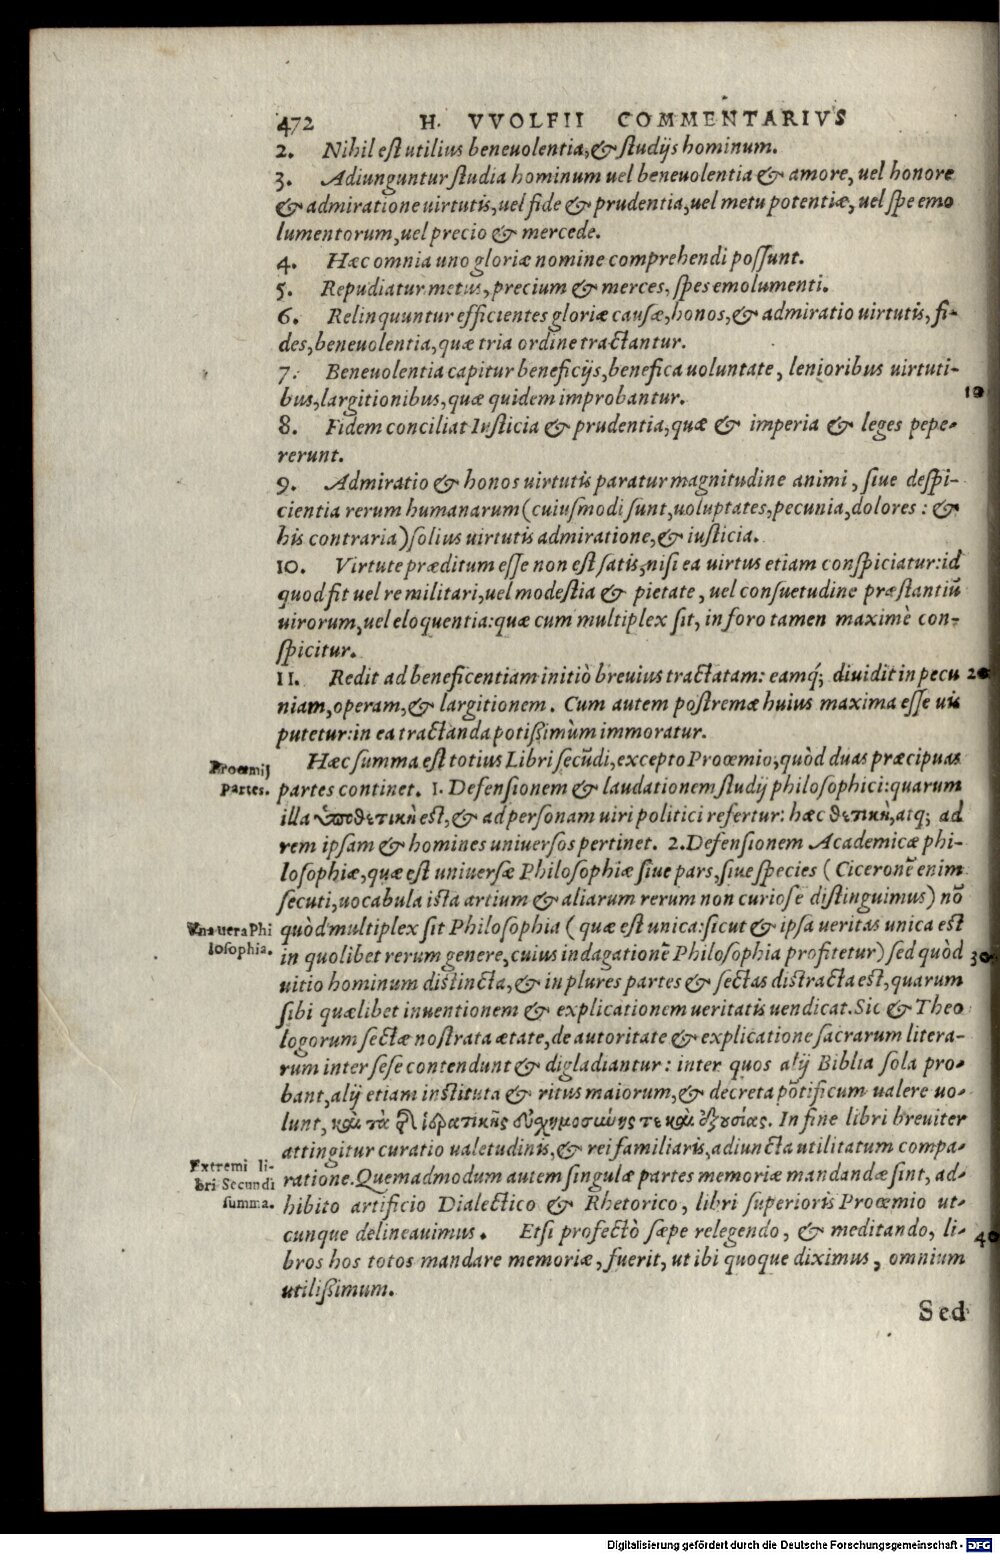 472 H. VVOLFII COMMENTARIVS
2. Nihil est utilius beneuolentia, & studijs hominum.
3. Adiunguntur studia hominum uel beneuolentia & amore, uel honore
& admiratione uirtutis, uel fide & prudentia, uel metu potentiæ, uel spe emo
lumentorum, uel precio & mercede.
4. Hæc omnia uno gloriæ nomine comprehendi possunt.
5. Repudiatur metus, precium & merces, spes emolumenti.
6. Relinquuntur efficientes gloriæ causæ, honos, & admiratio uirtutis, fi-
des, beneuolentia, quæ tria ordine tractantur.
7. Beneuolentia capitur beneficijs, benefica uoluntate, lenioribus uirtuti-
bus, largitionibus, quæ quidem improbantur. 10
8. Fidem conciliat Iusticia & prudentia, quæ & imperia & leges pepe-
rerunt.
9. Admiratio & honos uirtutis paratur magnitudine animi, siue despi-
cientia rerum humanarum (cuiusmodi sunt, uoluptates, pecunia, dolores: &
his contraria) solius uirtutis admiratione, & iusticia.
10. Virtute præditum esse non est satis, nisi ea uirtus etiam conspiciatur: id
quod fit uel re militari, uel modestia & pietate, uel consuetudine præstantiũ
uirorum, uel eloquentia: quæ cum multiplex sit, in foro tamen maximè con-
spicitur.
11. Redit ad beneficentiam initiò breuius tractatam: eamq́; diuidit in pecu 20
niam, operam, & largitionem. Cum autem postremæ huius maxima esse uis
putetur: in ea tractanda potißimùm immoratur.
Hæc summa est totius Libri secũdi, excepto Proœmio, quòd duas præcipuas
Proœmij
partes.
partes continet. 1. Defensionem & laudationem studij philosophici: quarum
illa ὑποθετικὴ est, & ad personam uiri politici refertur: hæc θετικὴ, atq; ad
rem ipsam & homines uniuersos pertinet. 2. Defensionem Academicæ phi-
losophiæ, quæ est uniuersæ Philosophiæ siue pars, siue species (Ciceronẽ enim
secuti, uocabula ista artium & aliarum rerum non curiose distinguimus) nõ
Vna uera Phi
losophia.
quòd multiplex sit Philosophia (quæ est unica: sicut & ipsa ueritas unica est
in quolibet rerum genere, cuius indagationẽ Philosophia profitetur) sed quòd 30
uitio hominum distincta, & in plures partes & sectas distracta est, quarum
sibi quælibet inuentionem & explicationem ueritatis uendicat. Sic & Theo
logorum sectæ nostrata ætate, de autoritate & explicatione sacrarum litera-
rum inter sese contendunt & digladiantur: inter quos alij Biblia sola pro-
bant, alij etiam instituta & ritus maiorum, & decreta põtificum ualere uo-
lunt, καὶ τὰ τῆς ἱερατικῆς εὐσχημοσύνης τε καὶ ἐξουσίας. In fine libri breuiter
attingitur curatio ualetudinis, & rei familiaris, adiuncta utilitatum compa-
Extremi li-
bri Secundi
summa.
ratione. Quemadmodum autem singulæ partes memoriæ mandandæ sint, ad-
hibito artificio Dialectico & Rhetorico, libri superioris Proœmio ut-
cunque delineauimus. Etsi profectò sæpe relegendo, & meditando, li- 40
bros hos totos mandare memoriæ, fuerit, ut ibi quoque diximus, omnium
utilißimum.
Sed
Digitalisierung gefördert durch die Deutsche Forschungsgemeinschaft - DFG